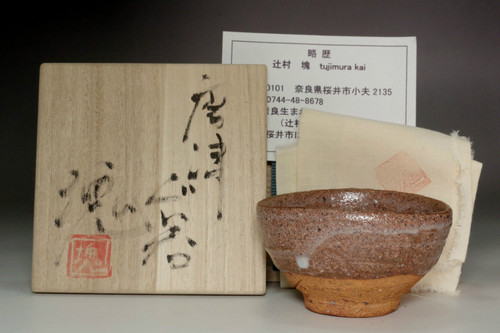 唐津
ぐい呑
塊
塊
略 歴
辻村 塊 tujimura kai
0101 奈良県桜井市小夫2135
0744-48-8678
良生ま
(辻村
桜井市に